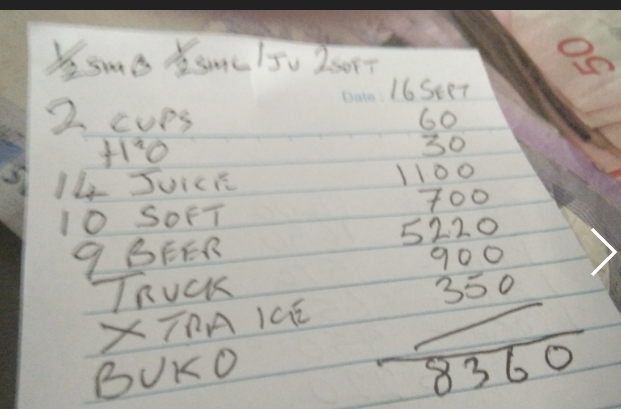 1/2 SMB 1/2 SML 1 JU 2 SOFT
Date: 16 SEPT
2 CUPS 60
H²O 30
14 JUICE 1100
10 SOFT 700
9 BEER 5220
TRUCK 900
XTRA ICE 350
BUKO
8360
50